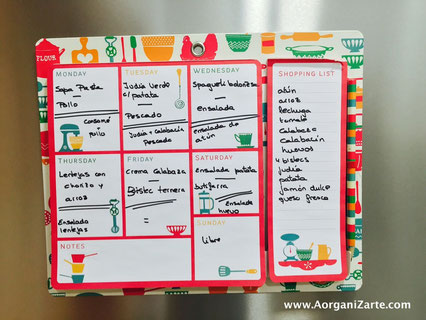 FLOUR
MONDAY
Sopa Pasta
Pollo
consomé
Pollo
TUESDAY
Judía Verde
c/ patata
Pescado
Judía + calabacín
Pescado
WEDNESDAY
Spaguetti boloñesa
ensalada
ensalada de
atún
THURSDAY
Lentejas con
chorizo y
arroz
Ensalada
lentejas
FRIDAY
Crema Calabaza
Bistec ternera
=
SATURDAY
Ensalada patata
Butifarra
Ensalada
huevo
SUNDAY
libre
NOTES
SHOPPING LIST
atún
arroz
lechuga
tomate
Calabaza
Calabacín
huevos
4 bistecs
judía
patata
jamón dulce
queso fresco
www.AorganiZarte.com